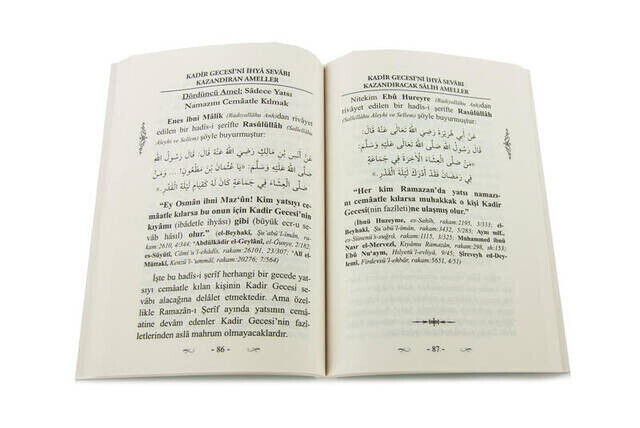 KADİR GECESİ'Nİ İHYÂ SEVÂBI
KAZANDIRAN AMELLER
Dördüncü Amel: Sâdece Yatsı
Namazını Cemâatle Kılmak
Enes ibni Mâlik (Radıyallâhu Anh)dan rivâyet
edilen bir hadîs-i şerîfte Rasûlüllâh (Sallellâhu
Aleyhi ve Sellem) şöyle buyurmuştur:
عَنْ أَنَسِ بْنِ مَالِكٍ رَضِيَ اللهُ عَنْهُ قَالَ: قَالَ رَسُولُ اللهِ
صَلَّى اللهُ عَلَيْهِ وَسَلَّمَ: «يَا عُثْمَانَ بْنَ مَظْعُونٍ!... وَمَنْ
صَلَّى الْعِشَاءَ فِي جَمَاعَةٍ كَانَ لَهُ كَقِيَامِ لَيْلَةِ الْقَدْرِ.»
"Ey Osmân ibni Maz'ûn! Kim yatsıyı
cemâatle kılarsa bu onun için Kadir Gecesi'nin
kıyâmı (ibâdetle ihyâsı) gibi (büyük ecr-u se-
vâb hâsıl) olur." (el-Beyhakî, Şu'abü'l-îmân, ra-
kam:2610, 4/344; 'Abdülkâdir el-Geylânî, el-Ğunye, 2/182;
es-Süyûtî, Câmi'u'l-ehâdîs, rakam:26101, 23/307; 'Alî el-
Müttakî, Kenzü'l-'ummâl, rakam:20276, 7/564)
İşte bu hadîs-i şerîf herhangi bir gecede yat-
sıyı cemâatle kılan kişinin Kadir Gecesi
sevâbı alacağına delâlet etmektedir. Ama özel-
likle Ramazân-ı Şerîf ayında yatsının cemâ-
atine devâm edenler Kadir Gecesi'nin fazî-
letlerinden aslâ mahrum olmayacaklardır.
- 86 -
KADİR GECESİ'Nİ İHYÂ SEVÂBI
KAZANDIRACAK SÂLİH AMELLER
Nitekim Ebû Hureyre (Radıyallâhu Anh)dan
rivâyet edilen bir hadîs-i şerîfte Rasûlüllâh
(Sallellâhu Aleyhi ve Sellem) şöyle buyurmuştur:
عَنْ أَبِي هُرَيْرَةَ رَضِيَ اللهُ تَعَالَى عَنْهُ قَالَ: قَالَ رَسُولُ اللهِ
صَلَّى اللهُ عَلَيْهِ وَسَلَّمَ: «مَنْ صَلَّى الْعِشَاءَ الْآخِرَةَ فِي جَمَاعَةٍ
فِي رَمَضَانَ فَقَدْ أَدْرَكَ لَيْلَةَ الْقَدْرِ.»
"Her kim Ramazan'da yatsı namazı-
nı cemâatle kılarsa muhakkak o kişi Kadir
Gecesi(nin fazîleti)ne ulaşmış olur."
(İbnü Huzeyme, es-Sahîh, rakam:2195, 3/333; el-
Beyhakî, Şu'abü'l-îmân, rakam:3432, 5/282; Aynı mlf.,
es-Sünenü's-suğrâ, rakam:1425, 2/433; Muhammed ibnü
Nasr el-Mervezî, Kıyâmu Ramazân, rakam:298, sh:153;
Ebû Nu'aym, Hılyetü'l-evliyâ, 9/45; Şîreveyh ed-Dey-
lemî, Firdevsü'l-ehbâr, rakam:5652, 4/51)
- 87 -